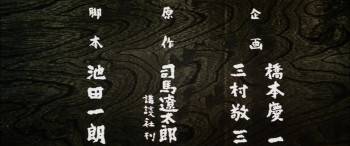 企画
橋本慶一
三村敬三
原作
司馬遼太郎
講談社刊
脚本
池田一朗